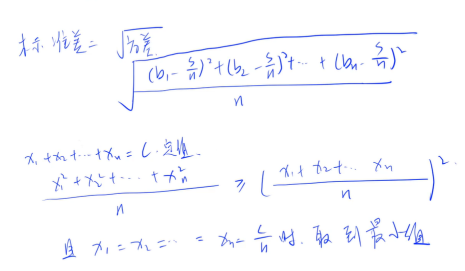 标准差 = √方差
√((b₁ - s/n)² + (b₂ - s/n)² + ... + (bₙ - s/n)² / n)
x₁ + x₂ + ... + xₙ = C. 定值.
(x₁² + x₂² + ... + xₙ²) / n ≥ ((x₁ + x₂ + ... xₙ) / n)².
且 x₁ = x₂ = ... = xₙ = C/n 时. 取到最小值